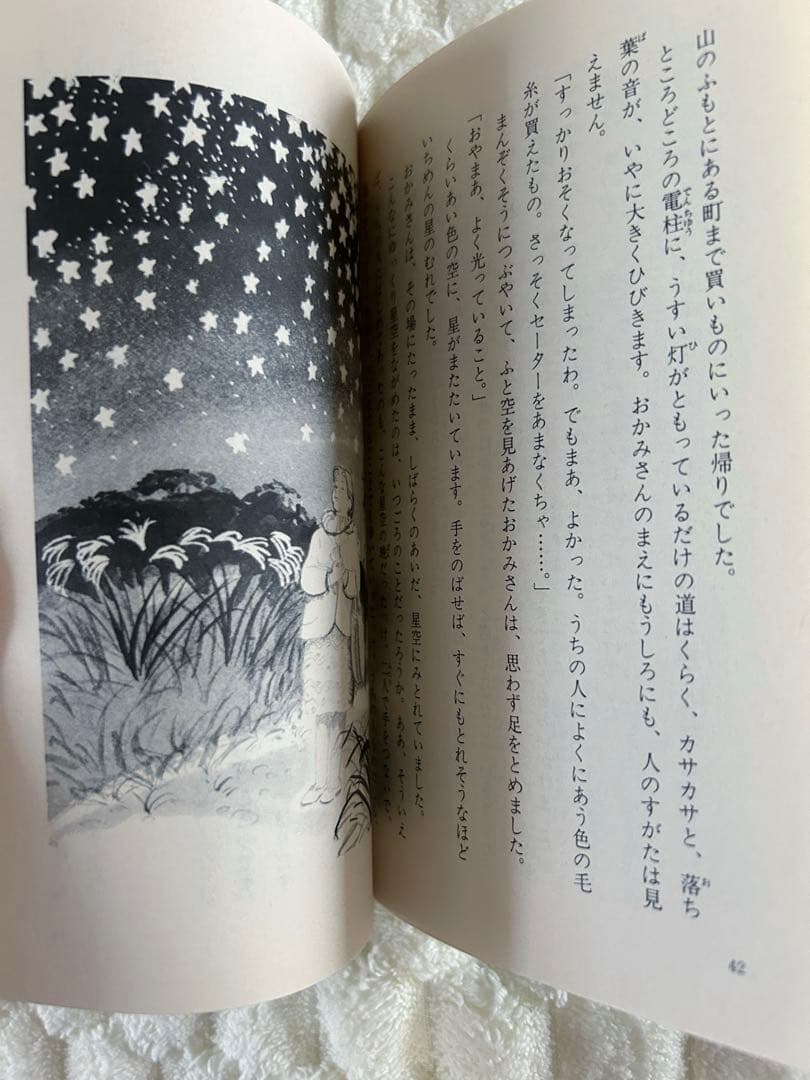 山のふもとにある町まで買いものにいった帰りでした。
ところどころの電柱に、うすい灯がともっているだけの道はくらく、カサカサと、落ち
葉の音が、いやに大きくひびきます。おかみさんのまえにもうしろにも、人のすがたは見
えません。
「すっかりおそくなってしまったわ。でもまあ、よかった。うちの人によくにあう色の毛
糸が買えたもの。さっそくセーターをあまなくちゃ……。」
まんぞくそうにつぶやいて、ふと空を見あげたおかみさんは、思わず足をとめました。
「おやまあ、よく光っていること。」
くらいあい色の空に、星がまたたいています。手をのばせば、すぐにもとれそうなほど
いちめんの星のむれでした。
おかみさんは、その場にたったまま、しばらくのあいだ、星空にみとれていました。
こんなにゆっくり星空をながめたのは、いつごろのことだったろうか。ああ、そういえ
こんな星空の晩だったっけ。二人で手をつないで、
42